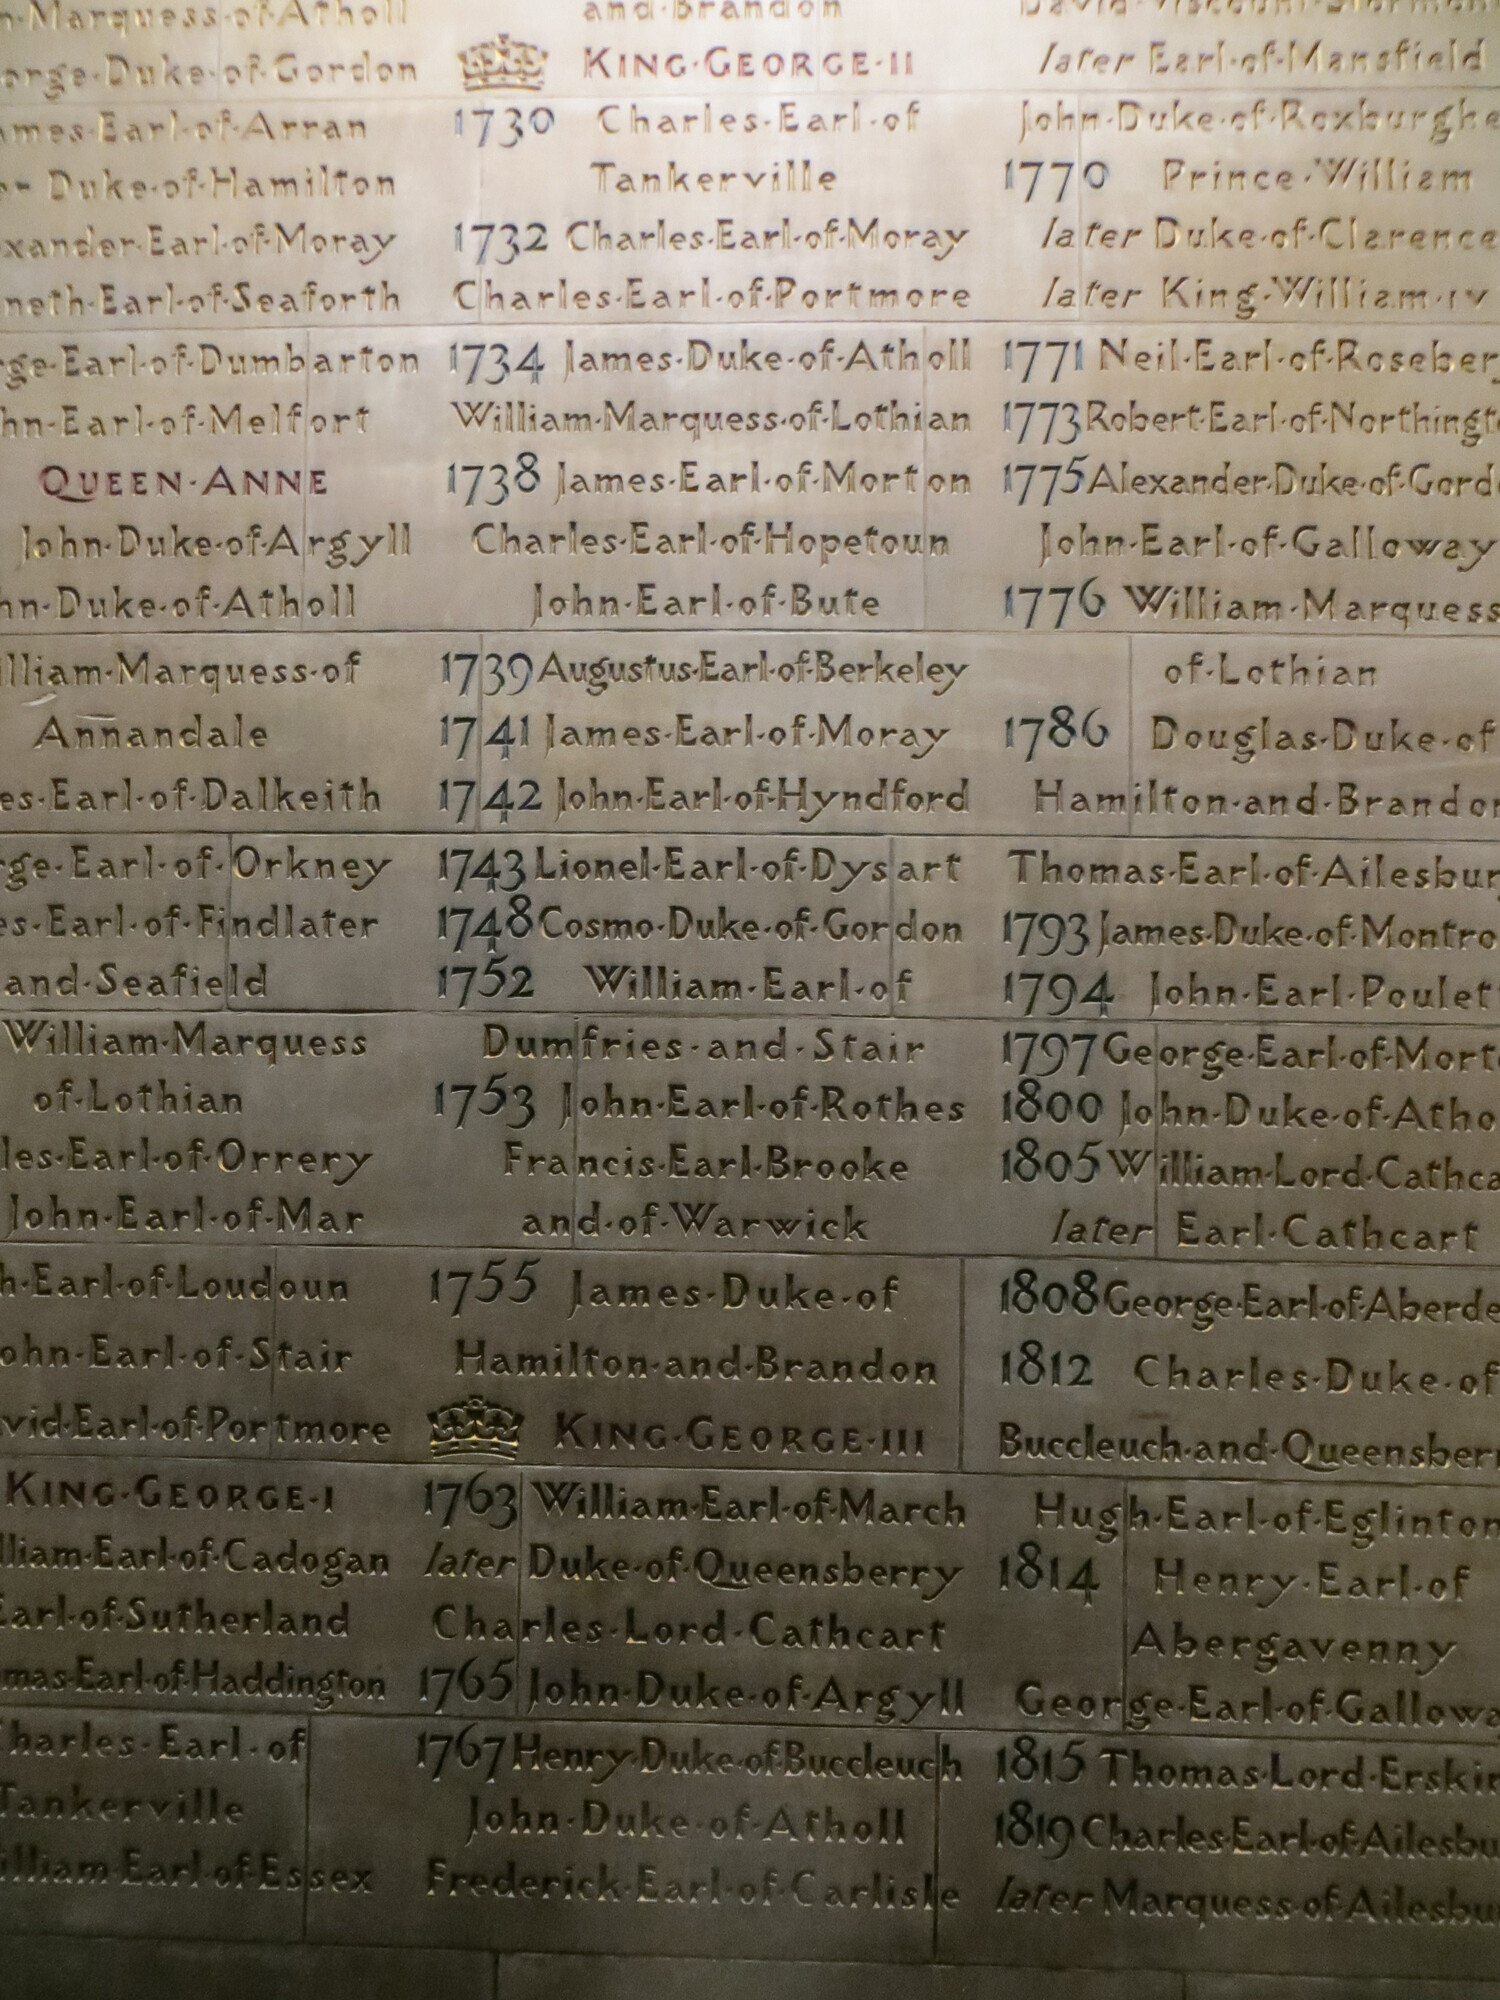 Marquess·of·Atholl
Duke·of·Gordon
Earl·of·Arran
Duke·of·Hamilton
Earl·of·Moray
Earl·of·Seaforth
Earl·of·Dumbarton
Earl·of·Melfort
QUEEN·ANNE
John·Duke·of·Argyll
Duke·of·Atholl
Marquess·of
Annandale
Earl·of·Dalkeith
Earl·of·Orkney
Earl·of·Findlater
and·Seafield
William·Marquess
of·Lothian
Earl·of·Orrery
John·Earl·of·Mar
Earl·of·Loudoun
Earl·of·Stair
Earl·of·Portmore
KING·GEORGE·I
Earl·of·Cadogan
Earl·of·Sutherland
Earl·of·Haddington
Charles·Earl·of
Tankerville
Earl·of·Essex
and·Brandon
KING·GEORGE·II
1730 Charles·Earl·of
Tankerville
1732 Charles·Earl·of·Moray
Charles·Earl·of·Portmore
1734 James·Duke·of·Atholl
William·Marquess·of·Lothian
1738 James·Earl·of·Morton
Charles·Earl·of·Hopetoun
John·Earl·of·Bute
1739 Augustus·Earl·of·Berkeley
1741 James·Earl·of·Moray
1742 John·Earl·of·Hyndford
1743 Lionel·Earl·of·Dysart
1748 Cosmo·Duke·of·Gordon
1752 William·Earl·of
Dumfries·and·Stair
1753 John·Earl·of·Rothes
Francis·Earl·Brooke
and·of·Warwick
1755 James·Duke·of
Hamilton·and·Brandon
KING·GEORGE·III
1763 William·Earl·of·March
later Duke·of·Queensberry
Charles·Lord·Cathcart
1765 John·Duke·of·Argyll
1767 Henry·Duke·of·Buccleuch
John·Duke·of·Atholl
Frederick·Earl·of·Carlisle
David·Viscount·Stormont
later Earl·of·Mansfield
John·Duke·of·Roxburghe
1770 Prince·William
later Duke·of·Clarence
later King·William·IV
1771 Neil·Earl·of·Rosebery
1773 Robert·Earl·of·Northingt
1775 Alexander·Duke·of·Gord
John·Earl·of·Galloway
1776 William·Marquess
of·Lothian
1786 Douglas·Duke·of
Hamilton·and·Brandon
Thomas·Earl·of·Ailesbur
1793 James·Duke·of·Montro
1794 John·Earl·Poulet
1797 George·Earl·of·Mort
1800 John·Duke·of·Atho
1805 William·Lord·Cathca
later Earl·Cathcart
1808 George·Earl·of·Aberde
1812 Charles·Duke·of
Buccleuch·and·Queensber
Hugh·Earl·of·Eglinton
1814 Henry·Earl·of
Abergavenny
George·Earl·of·Gallowa
1815 Thomas·Lord·Erskin
1819 Charles·Earl·of·Ailesbu
later Marquess·of·Ailesbu